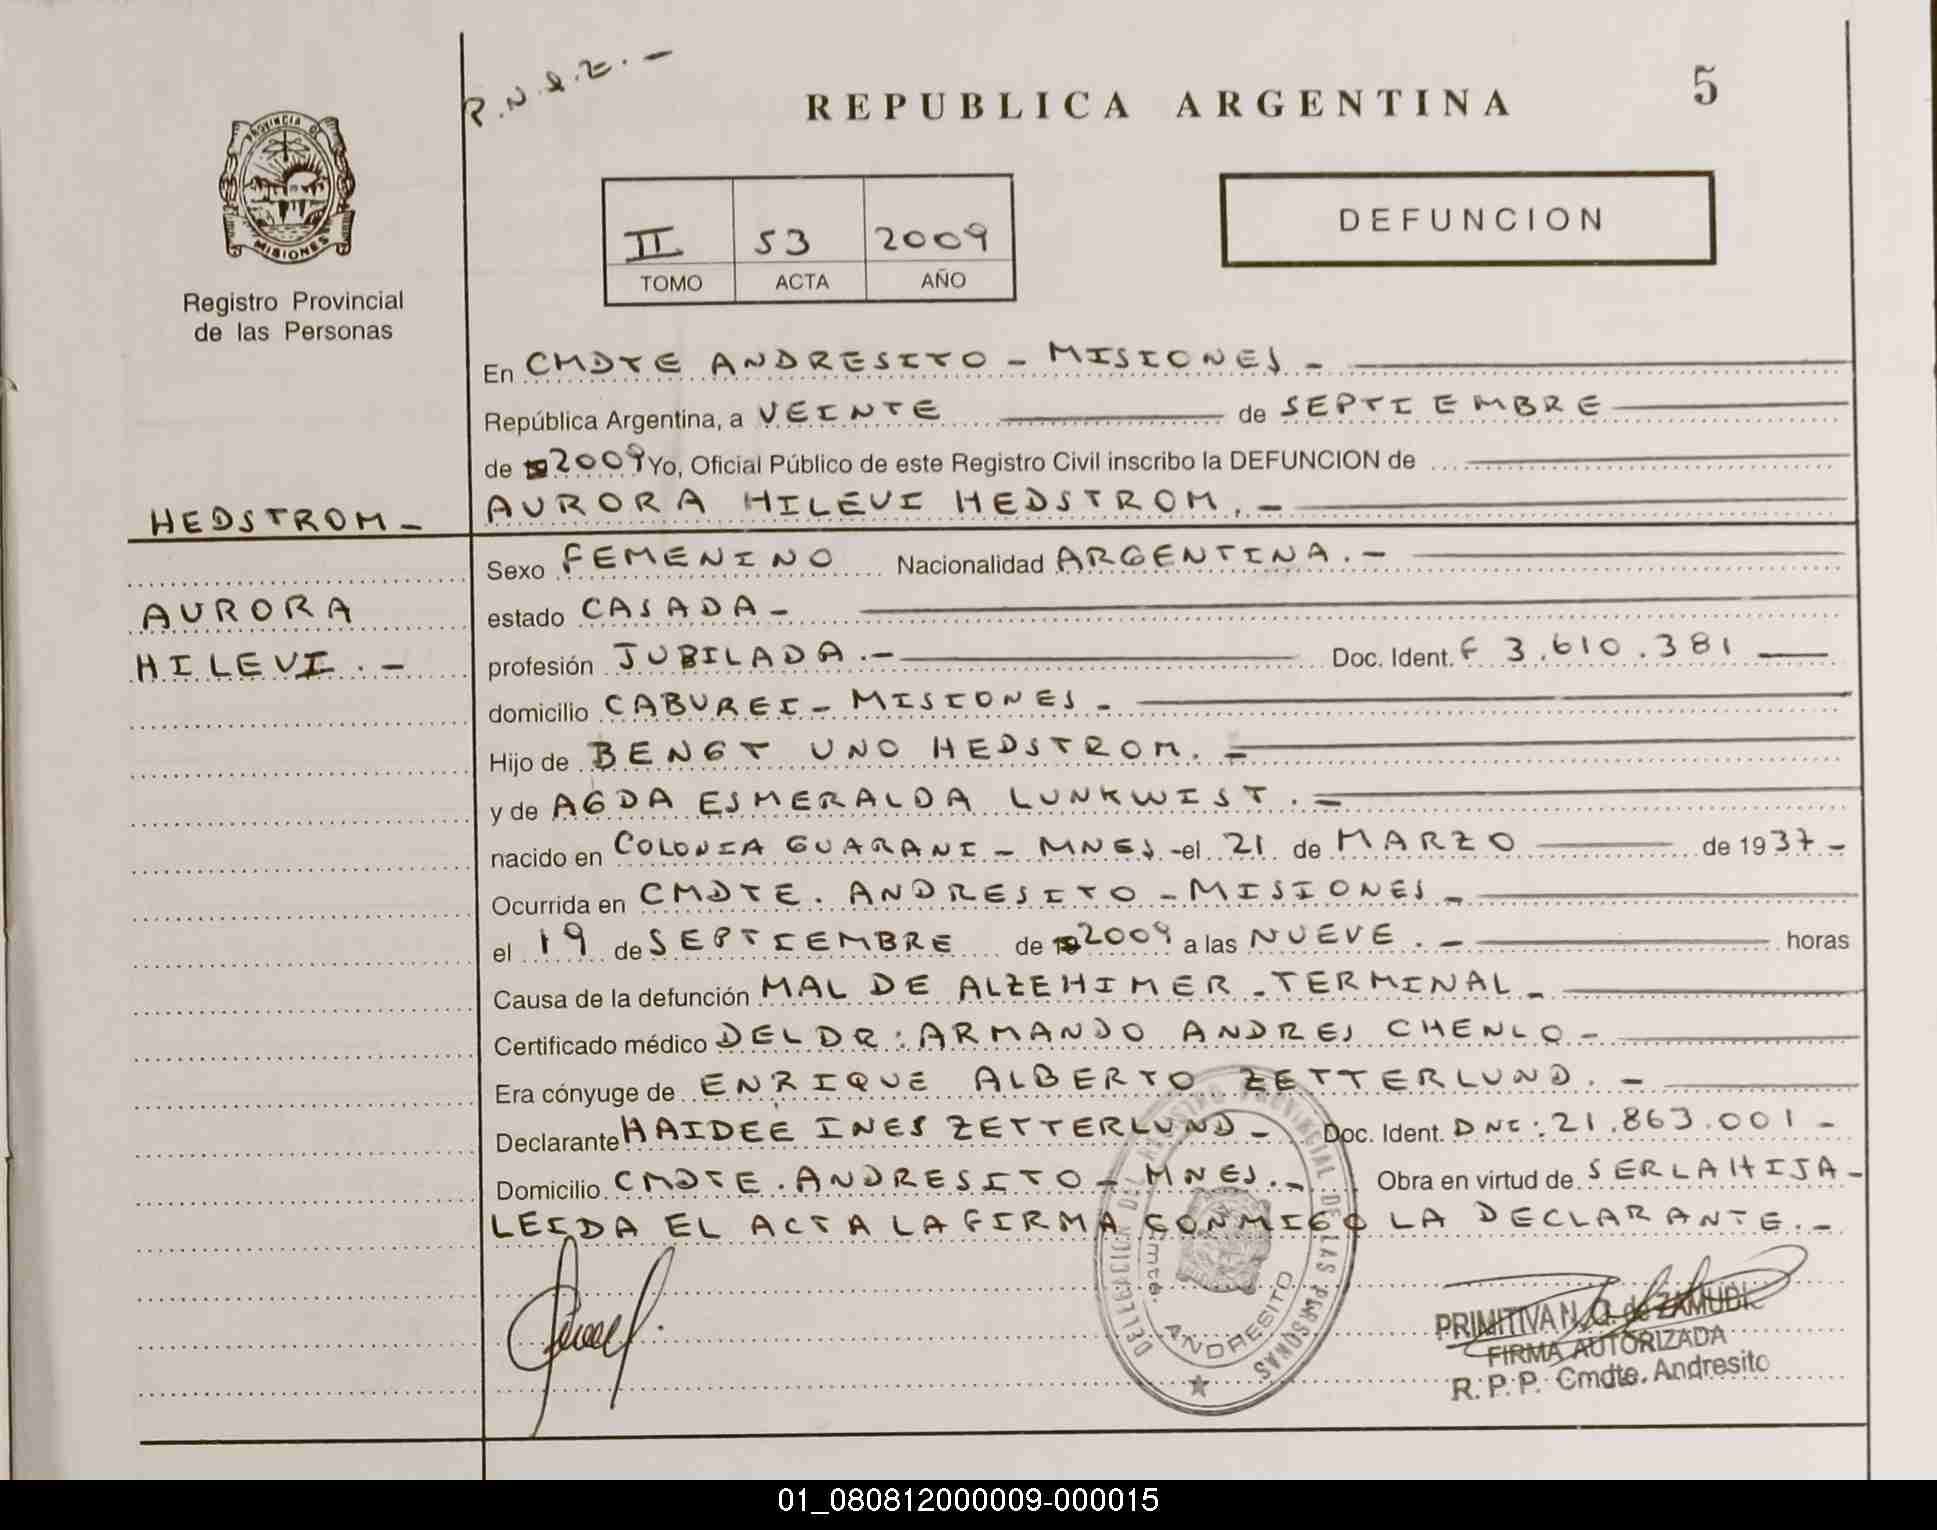 R.N.
REPUBLICA ARGENTINA
5
PROVINCIA DE
MISIONES
Registro Provincial
de las Personas
II 53 2009
TOMO ACTA AÑO
DEFUNCION
En CMDTE ANDRESITO - MISIONES -
República Argentina, a VEINTE de SEPTIEMBRE
de 2009 Yo, Oficial Público de este Registro Civil inscribo la DEFUNCION de
HEDSTROM -
AURORA HILEVI HEDSTROM. -
Sexo FEMENINO Nacionalidad ARGENTINA. -
AURORA
estado CASADA -
HILEVI. -
profesión JUBILADA. - Doc. Ident. F 3.610.381
domicilio CABUREI - MISIONES -
Hijo de BENGT UNO HEDSTROM. -
y de AGDA ESMERALDA LUNKWIST. -
nacido en COLONIA GUARANI - MNES - el 21 de MARZO de 1937 -
Ocurrida en CMDTE. ANDRESITO - MISIONES -
el 19 de SEPTIEMBRE de 2009 a las NUEVE. - horas
Causa de la defunción MAL DE ALZEHIMER - TERMINAL -
Certificado médico DEL DR: ARMANDO ANDRES CHENLO -
Era cónyuge de ENRIQUE ALBERTO ZETTERLUND. -
Declarante HAIDEE INES ZETTERLUND - Doc. Ident. DNI: 21.863.001 -
Domicilio CMDTE. ANDRESITO - MNES. - Obra en virtud de SER LA HIJA -
LEIDA EL ACTA LA FIRMA CONMIGO LA DECLARANTE. -
DELEGACION DEL REGISTRO PROVINCIAL DE LAS PERSONAS
Cmte. ANDRESITO
PRIMITIVA N. Q. de ZAMUDIO
FIRMA AUTORIZADA
R. P. P. Cmdte. Andresito
01_080812000009-000015